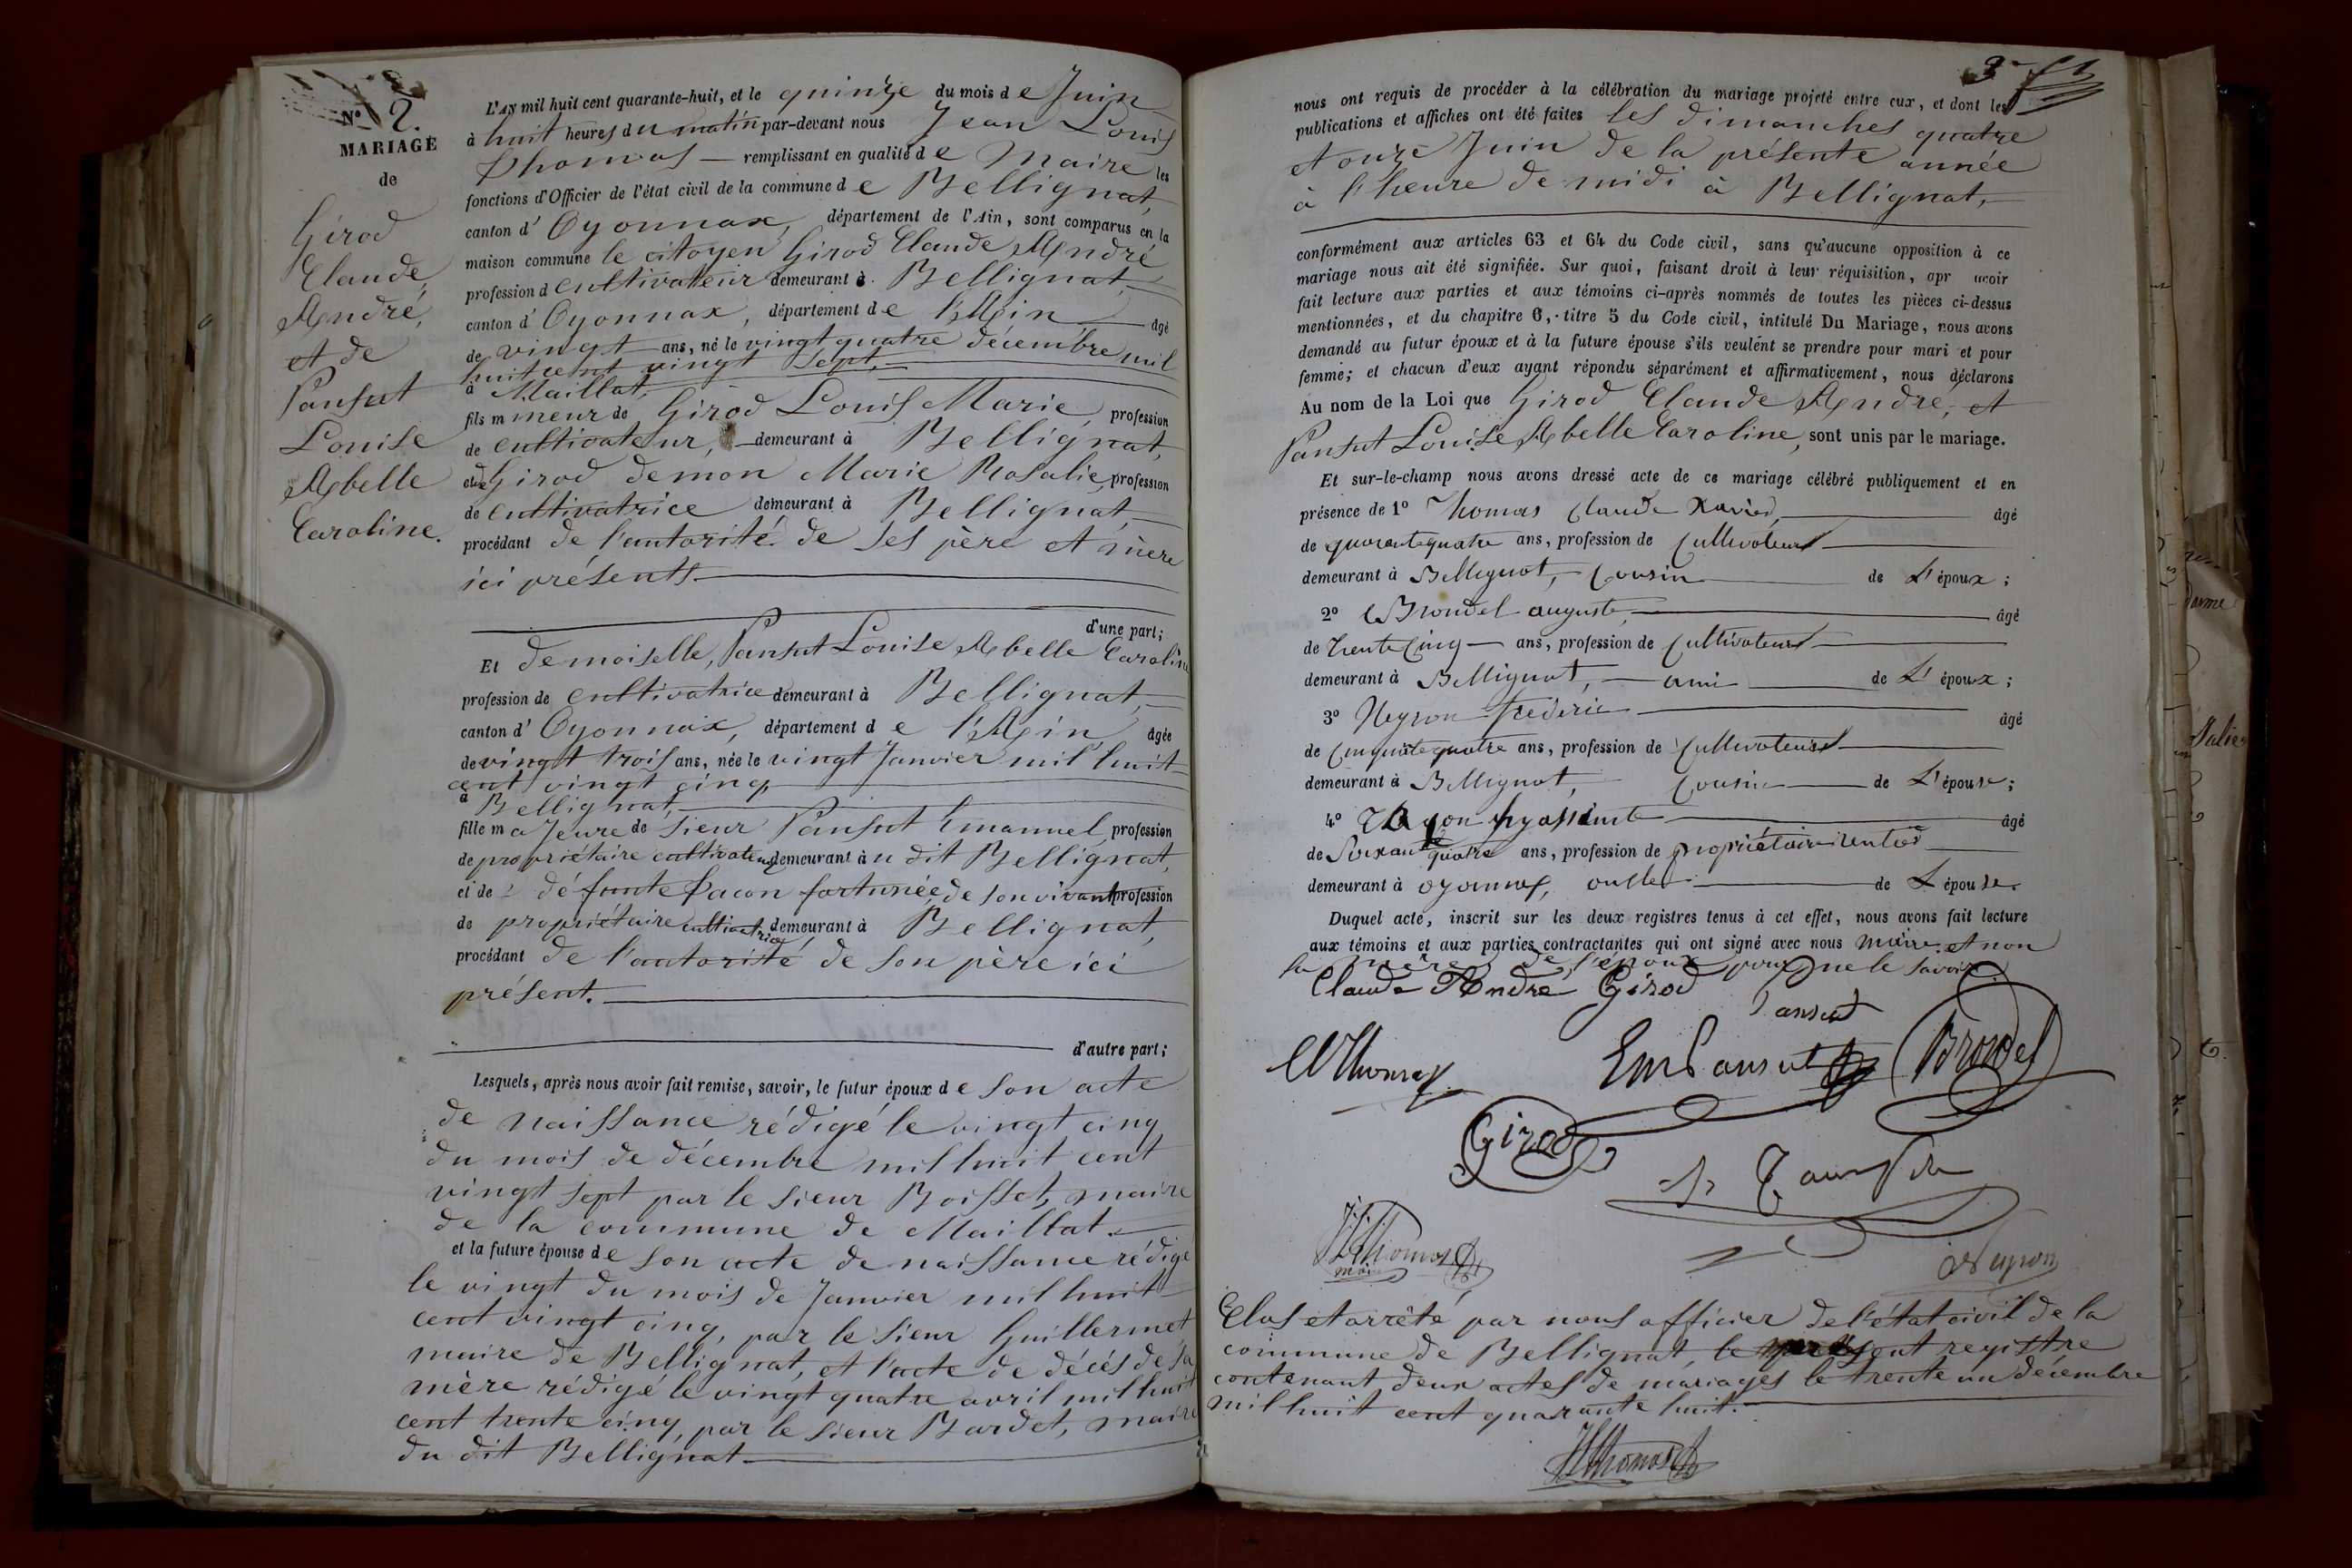 N° 2.
MARIAGE
de
Girod
Claude
André,
et de
Pansut
Louise
Abelle
Caroline.
L'AN mil huit cent quarante-huit, et le quinze du mois de Juin
à huit heures du matin par-devant nous Jean Louis
Thomas remplissant en qualité de Maire les
fonctions d'Officier de l'état civil de la commune de Bellignat,
canton d'Oyonnax, département de l'Ain, sont comparus en la
maison commune le citoyen Girod Claude André
profession d cultivateur demeurant à Bellignat,
canton d'Oyonnax, département de l'Ain âgé
de vingt ans, né le vingt quatre décembre mil
huit cent vingt sept,
à Maillat,
fils mineur de Girod Louis Marie, profession
de cultivateur, demeurant à Bellignat,
et de Girod demon Marie Rosalie, profession
de cultivatrice demeurant à Bellignat,
procédant de l'autorité de ses père et mère
ici présents.
d'une part;
Et demoiselle, Pansut Louise Abelle Caroline
profession de cultivatrice demeurant à Bellignat,
canton d'Oyonnax, département de l'Ain, âgée
de vingt trois ans, née le vingt Janvier mil huit
cent vingt cinq
à Bellignat,
fille majeure de sieur Pansut Emanuel, profession
de propriétaire cultivateur demeurant àu dit Bellignat,
et de défunte Lacon fortunée, de son vivant profession
de propriétaire cultivatrice, demeurant à Bellignat,
procédant de l'autorité de son père ici
présent.
d'autre part;
Lesquels, après nous avoir fait remise, savoir, le futur époux de son acte
de naissance rédigé le vingt cinq
du mois de décembre mil huit cent
vingt sept par le sieur Boisset, maire
de la commune de Maillat.
et la future épouse de son acte de naissance rédigé
le vingt du mois de Janvier mil huit
cent vingt cinq, par le sieur Guillermet
maire de Bellignat, et l'acte de décés de sa
mère rédigé le vingt quatre avril mil huit
cent trente cinq, par le sieur Bardet, maire
du dit Bellignat
3
nous ont requis de procéder à la célébration du mariage projeté entre eux, et dont les
publications et affiches ont été faites les dimanches quatre
et onze Juin de la présente année
à l'heure de midi à Bellignat,
conformément aux articles 63 et 64 du Code civil, sans qu'aucune opposition à ce
mariage nous ait été signifiée. Sur quoi, faisant droit à leur réquisition, apr avoir
fait lecture aux parties et aux témoins ci-après nommés de toutes les pièces ci-dessus
mentionnées, et du chapitre 6, titre 5 du Code civil, intitulé Du Mariage, nous avons
demandé au futur époux et à la future épouse s'ils veulent se prendre pour mari et pour
femme; et chacun d'eux ayant répondu séparément et affirmativement, nous déclarons
Au nom de la Loi que Girod Claude André, et
Pansut Louise Abelle Caroline, sont unis par le mariage.
Et sur-le-champ nous avons dressé acte de ce mariage célébré publiquement et en
présence de 1° Thomas Claude Xavier, âgé
de quarante quatre ans, profession de Cultivateur
demeurant à Bellignat, Cousin de L'époux;
2° Brondel auguste, âgé
de trente Cinq ans, profession de Cultivateur
demeurant à Bellignat, ami de L'époux;
3° Neyron frederic âgé
de Cinquante quatre ans, profession de Cultivateur
demeurant à Bellignat, Cousin de L'épouse;
4° hyassinte âgé
de Soixante quatre ans, profession de propriétaire rentier
demeurant à oyonnax, de L'épouse.
Duquel acte, inscrit sur les deux registres tenus à cet effet, nous avons fait lecture
aux témoins et aux parties contractantes qui ont signé avec nous maire. et non
la mère de l'époux pour ne le savoir.
Claude André Girod
Pansut
Thomas
Em Pansut
Brondel
Girod
Thomas
maire
Neyron
Clos et arrêté par nous officier de l'état civil de la
commune de Bellignat, le présent registre
contenant deux actes de mariages le trente un décembre
mil huit cent quarante huit.
Thomas